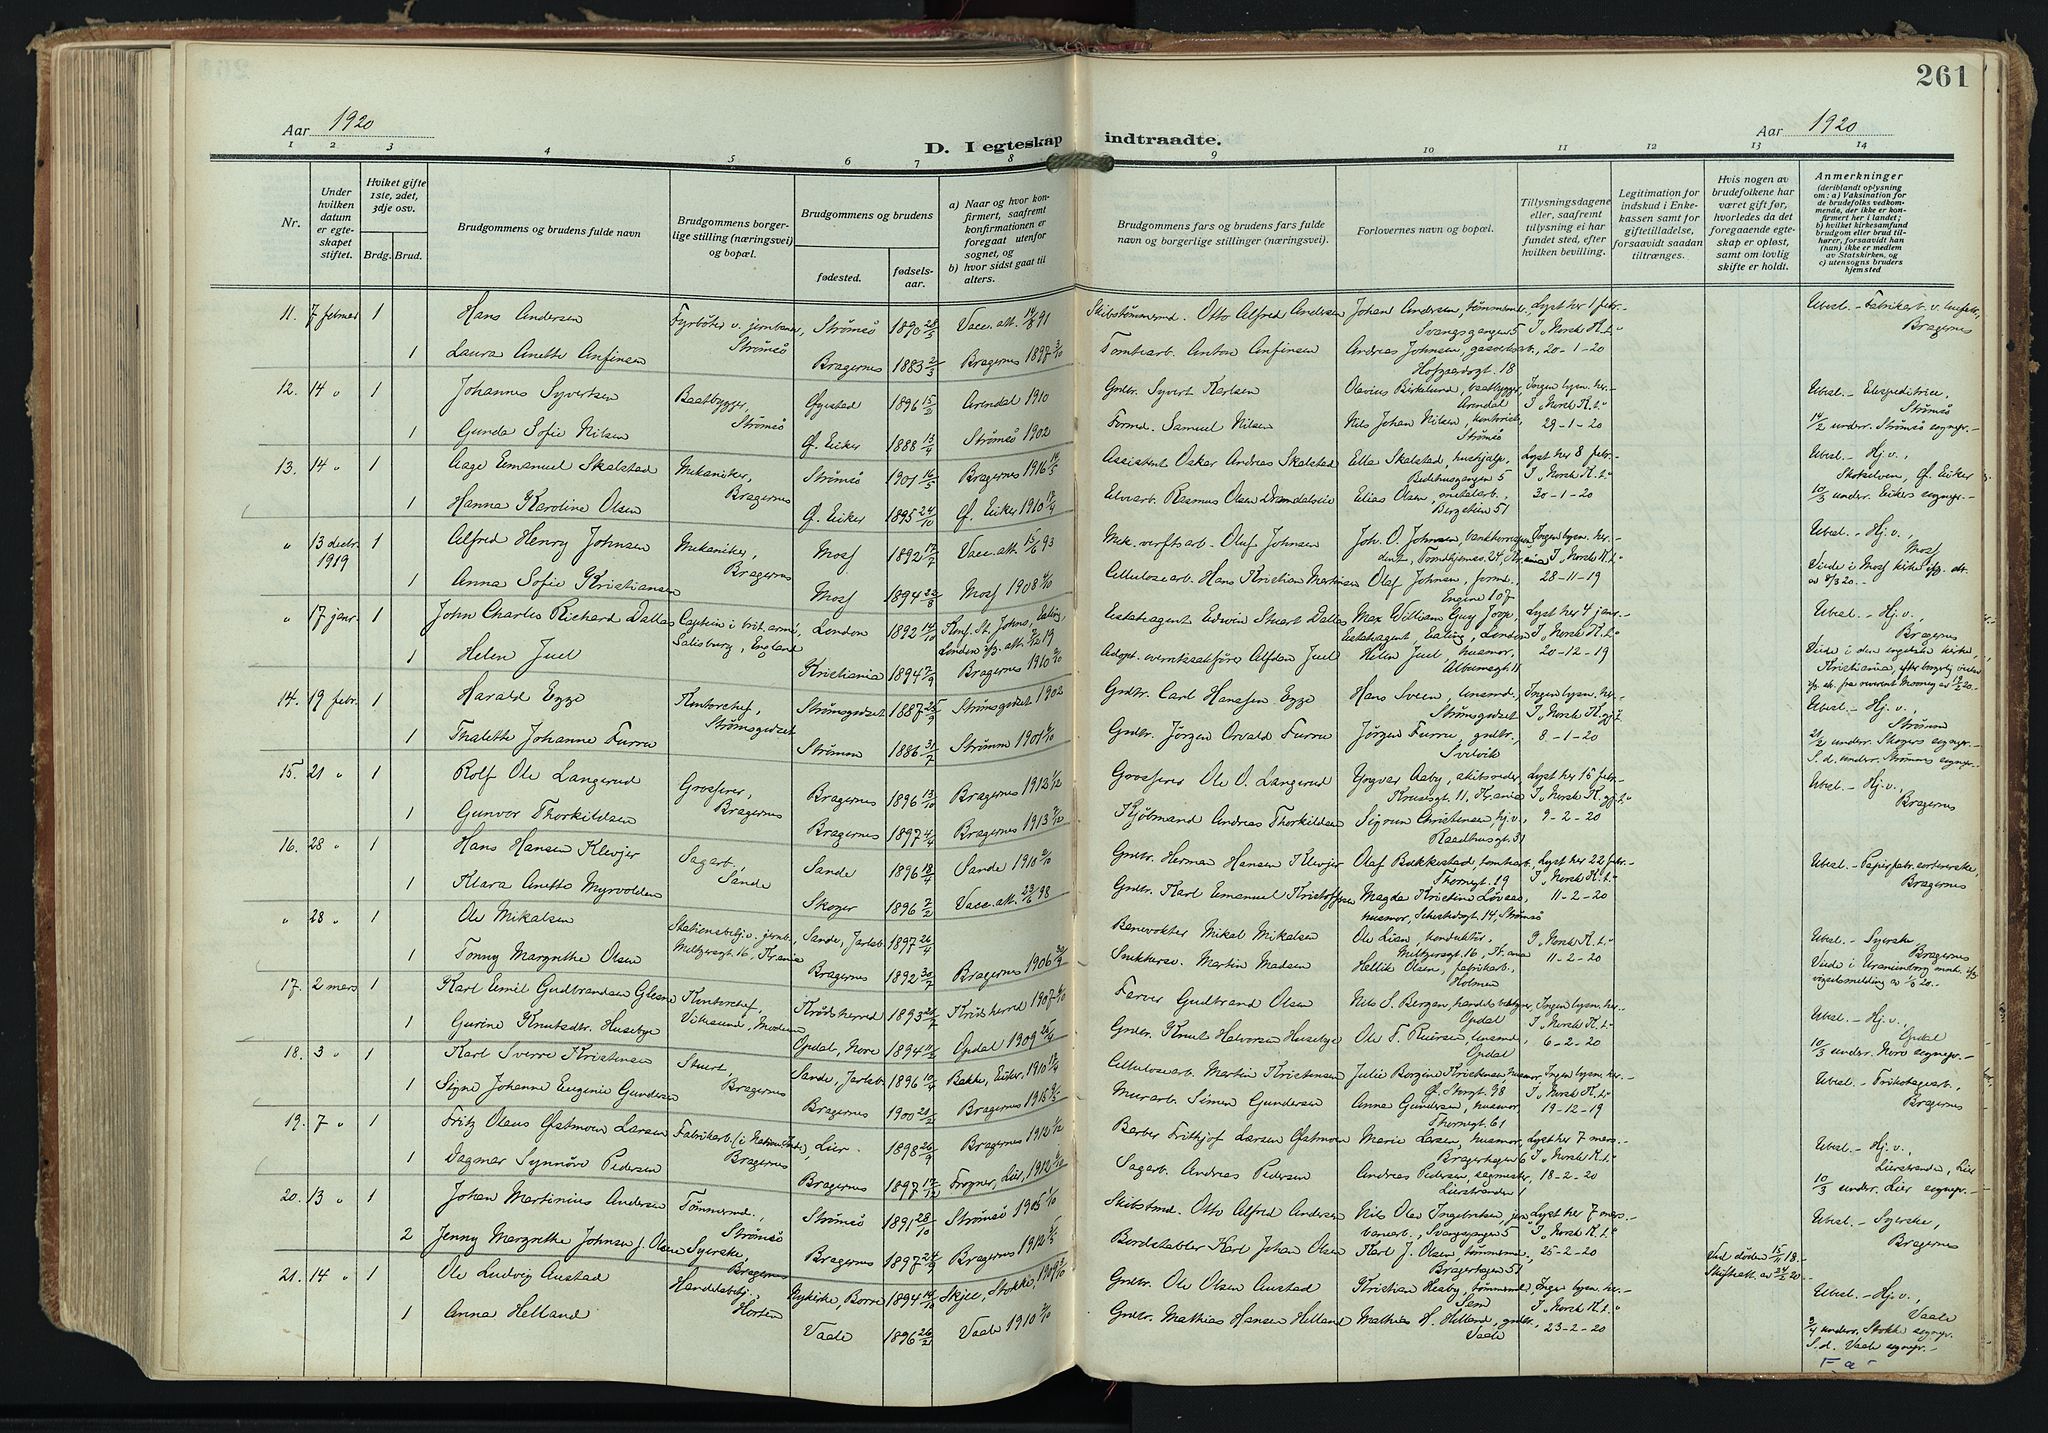 261
Aar 1920
D. I egteskap indtraadte.
Aar 1920
1 2 3 4 5 6 7 8 9 10 11 12 13 14
Nr.
Under hvilken datum er egteskapet stiftet.
Hvilket gifte 1ste, 2det, 3dje osv.
Brdg. Brud.
Brudgommens og brudens fulde navn
Brudgommens borgerlige stilling (næringsvei) og bopæl.
Brudgommens og brudens
fødested.
fødselsaar.
a) Naar og hvor konfirmert, saafremt konfirmationen er foregaat utenfor sognet, og
b) hvor sidst gaat til alters.
Brudgommens fars og brudens fars fulde navn og borgerlige stillinger (næringsvei).
Forlovernes navn og bopæl.
Tillysningsdagene eller, saafremt tillysning ei har fundet sted, efter hvilken bevilling.
Legitimation for indskud i Enkekassen samt for giftetilladelse, forsaavidt saadan tiltrænges.
Hvis nogen av brudefolkene har været gift før, hvorledes da det foregaaende egteskap er opløst, samt om lovlig skifte er holdt.
Anmerkninger
(deriblandt oplysning om: a) Vaksination for de brudefolks vedkommende, der ikke er konfirmert her i landet; b) hvilket kirkesamfund brudgom eller brud tilhører, forsaavidt han (hun) ikke er medlem av Statskirken, og c) utensogns bruders hjemsted
11. 7 februar 1 Hans Andersen Fyrbøter v. jernbanen, Strømsø Strømsø 1890 28/5 Vacc. att. 14/8 91 Skibstømmermd. Otto Alfred Andersen Johan Andersen, tømmermd., Svangsgangen 5 Lyst her 1 febr. I "Norsk K.t." Ubesl. - Fabrikarb.
1 Laura Anette Anfinsen Bragernes 1883 2/3 Bragernes 1897 3/10 Tomtearb. Anton Anfinsen Andreas Johnsen, Hofgaardsgt. 18 20-1-20 Bragernes
12. 14 " 1 Johannes Syvertsen Baatbygger, Strømsø Øyestad 1896 15/2 Arendal 1910 Gndbr. Syvert Karlsen Olavius Birkelund, baatbygger, Arendal Ingen lysn. her. I "Norsk K.t." Ubesl. - Ekspeditrice, Strømsø
1 Gunda Sofie Nilsen Ø. Eiker 1888 13/4 Strømsø 1902 Formd. Samuel Nilsen Nils Johan Nilsen, kontorist, Strømsø 29-1-20 14/2 underr. Strømsø sognepr.
13. 14 " 1 Aage Emanuel Skalstad Mekaniker, Bragernes Strømsø 1901 16/5 Bragernes 1916 14/5 Assistent Oskar Andreas Skalstad Ella Skalstad, hushjælp, Bedehusgangen 5 Lyst her 8 febr. I "Norsk K.t." Ubesl. - Hj.v. Skotselven, Ø. Eiker
1 Hanna Karoline Olsen Ø. Eiker 1895 24/10 Ø. Eiker 1910 17/4 Elvearb. Rasmus Olsen Elias Olsen, metalarb., Bergstien 51 30-1-20 10/3 underr. Eikers sognepr.
" 13 decbr. 1919 1 Alfred Henry Johnsen Mekaniker, Bragernes Moss 1892 17/7 Vacc. att. 15/6 93 Mek. verkstarb. Oluf Johnsen Joh. O. Johnsen, Trondhjemsv. 24, Kr.ania Ingen lysn. her. I "Norsk K.t." Ubesl. - Hj.v., Moss
1 Anna Sofie Kristiansen Moss 1894 23/8 Moss 1908 4/10 Cellulosearb. Hans Kristian Martinsen Olaf Johnsen, formd., Engene 107 28-11-19 Viede i Moss kirke
" 17 janr. 1 John Charles Richard Dallas Captein i brit. armé, Salisbury, England London 1892 14/10 Konf. St. Johns, Ealing, London Estateagent Edwin Stuart Dallas Max William Guy Joop, Estateagent, Ealing, London Lyst her 4 janr. I "Norsk K.t." Ubesl. - Hj.v., Bragernes
1 Helen Juel Kristiania 1894 7/9 Bragernes 1910 2/10 Adopt. Alfdan Juel Helen Juel, husmor, Albumsgt. 11 20-12-19 Viede i den engelske kirke, Kristiania
14. 19 febr. 1 Harald Egge Kontorchef, Strømsgodset Strømsgodset 1887 25/9 Strømsgodset 1902 Gndbr. Carl Hanssen Egge Hans Sveen, Strømsgodset Ingen lysn. her. I "Norsk K. Ubesl. - Hj.v., Strømm
1 Thalette Johanne Furru Strømm 1886 31/7 Strømm 1901 6/10 Gndbr. Jörgen Osvald Furru Jörgen Furru, gndbr., Svelvik 8-1-20 21/2 underr. Skogers sognepr. S.d. underr. Strømms sognepr.
15. 21 " 1 Rolf Ole Langerud Grosserer, Bragernes Bragernes 1896 13/10 Bragernes 1912 1/12 Grosserer Ole O. Langerud Yngvar Aaby, skibsreder, Krusesgt. 11, Kr.ania Lyst her 15 febr. I "Norsk K. Ubesl. - Hj.v., Bragernes
1 Gunvor Thorkildsen Bragernes 1897 4/4 Bragernes 1913 Kjølmand Andreas Thorkildsen Sigrun Christensen, hj.v., Raadhusgt. 31 9-2-20
16. 28 " 1 Hans Hansen Klevjer Sagarb., Sande Sande 1896 18/4 Sande 1910 2/10 Gndbr. Herman Hansen Klevjer Olaf Bakkestad, tomtearb., Thornegt. 19 Lyst her 22 febr. I "Norsk K.t." Ubesl. - Papirfabr. sorterarske, Bragernes
1 Klara Anette Myrvolden Skoger 1896 7/2 Vacc. att. 23/6 98 Gndbr. Karl Emanuel Kristoffersen Magda Kristine Løvaas, husmor, Schestedsgt. 14, Strømsø 11-2-20
" 28 " 1 Ole Mikalsen Stationsbetj. v. jernb., Meltzersgt. 16, Kr.ania Sande, Jarlsb. 1897 26/4 Banevokter Mikal Mikalsen Ole Lian, konduktør, Meltzersgt. 16, Kr.ania I "Norsk K.t." Ubesl. - Syerske, Bragernes
1 Tonny Margrethe Olsen Bragernes 1892 30/7 Bragernes 1906 30/9 Snekkersv. Martin Madsen Hellik Olsen, fabrikarb., Holmen 11-2-20 Viede i Uranienborg
17. 2 mars 1 Karl Emil Gudbrandsen Glesne Kontorchef, Vikesund, Modum Krødsherred 1893 Krødsherred 1907 Farver Gudbrand Olsen Nils S. Bergan, Opdal Ingen lysn. her. I "Norsk K.t." Ubesl. - Hj.v., Opdal
1 Gurine Knutsdtr. Husebye Opdal, Nore 1894 Opdal 1909 Gndbr. Knut Halvorsen Husebye Ole T. Opdal 6-2-20 10/3 underr. Nore sognepr.
18. 3 " 1 Karl Sverre Kristensen Stuert, Bragernes Sande, Jarlsb. 1896 10/4 Bakke, Eiker, 1910 17/4 Cellulosearb. Martin Kristensen Julie Bergine Kristensen, husmor, Ø. Storgt. 98 Ingen lysn. her. I "Norsk K.t." Ubesl. - Trikotagearb., Bragernes
1 Signe Johanne Eugenie Gundersen Bragernes 1900 21/2 Bragernes 1915 Murarb. Simen Gundersen Anna Gundersen, husmor, Thornegt. 61 19-12-19
19. 7 " 1 Fritz Olaus Østmoen Larsen Fabrikarb. Bragernes Lier 1898 26/9 Bragernes 1912 1/12 Barber Frithjof Larsen Østmoen Marie Larsen, husmor, Bragerhagen 6 Lyst her 7 mars. I "Norsk K.t." Ubesl. - Hj.v. Lierstranden, Lier
1 Dagmar Synnøve Pedersen Bragernes 1897 17/12 Frogner, Lier, 1912 Sagarb. Andreas Pedersen Andreas Pedersen, sagmester, Lierstranden 1 18-2-20 10/3 underr. Lier sognepr.
20. 13 " 1 Johan Martinius Andersen Tømmermd., Strømsø Strømsø 1891 28/10 Strømsø 1905 1/10 Skibstmd. Otto Alfred Andersen Nils Olav Ingebretsen, Svangsgangen 5 Lyst her 7 mars. I "Norsk K.t." Ubesl. - Syerske, Bragernes
2 Jenny Margrethe Johnsen f. Olsen Syerske, Bragernes Bragernes 1897 24/9 Bragernes 1912 Bordstabler Karl Johan Olsen Karl J. Olsen, tømmermd., Bragerhagen 51 25-2-20 Ved døden 15/11 18. Skifteatt. av 24/2 20
21. 14 " 1 Ole Ludvig Austad Handelsbetj., Horten Nykirke, Borre 1894 14/10 Skjee, Stokke, 1909 3/10 Gndbr. Ole Olsen Austad Kristian Hesby, tømmermd., Sem Ingen lysn. her. I "Norsk K.t." Ubesl. - Hj.v., Vaale
1 Anna Helland Vaale 1896 26/2 Vaale 1910 2/10 Gndbr. Mathias Hansen Helland Mathias H. Helland, gndbr., Vaale 23-2-20 3/4 underr. Stokke sognepr. S.d. Vaale sognepr.